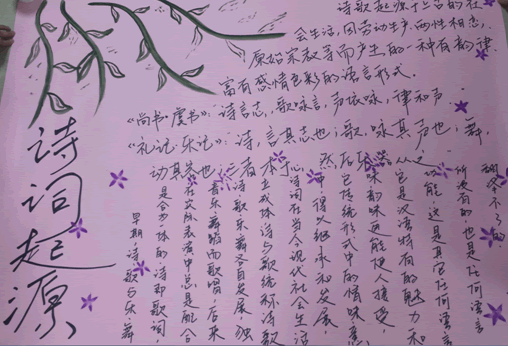 诗词起源
诗歌起源于上古的社
会生活，因劳动生产，两性相恋，
原始宗教等而产生的一种有韵律，
富有感情色彩的语言形式。
《尚书·虞书》：诗言志，歌咏言，声依咏，律和声
《礼记·乐记》：诗，言其志也；歌，咏其声也；舞，
动其容也；三者本于心，然后乐器从之
早期，诗歌与乐舞
是合为一体的，诗即歌词，
在实际表演中总是配合
音乐舞蹈而歌唱，后来
诗歌乐舞各自发展，独
立成体，诗与歌统称诗歌
诗词在当今现代社会生活
中得以继承和发展，
它传统形式中的情味
韵味更能使人接受，
它是汉语特有的魅力和
功能，这是其它任何语言
所没有的，也是任何语言
翻译不了的